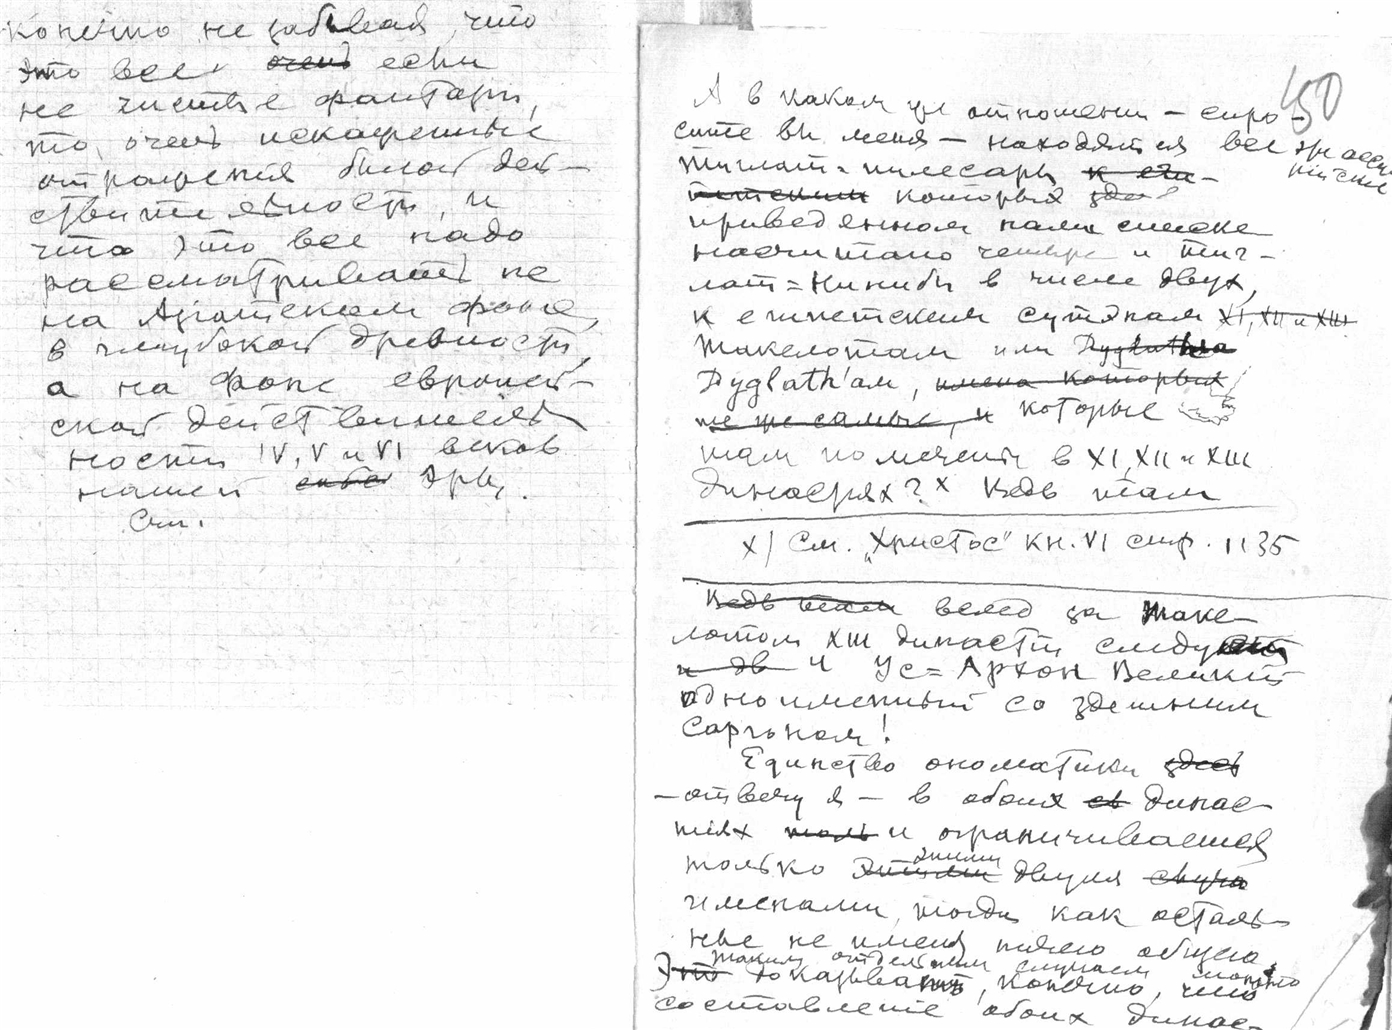 конечно не забывая, что
это все очень если
не чистые фантазии,
то, очень искаженные
отражения былой дей-
ствительности, и
что это все надо
рассматривать не
на Азиатском фоне,
в глубокой древности,
а на фоне европей-
ской действитель-
ности IV, V и VI веков
нашей эры.
См.
50
А в каком же отношении – спро-
сите вы меня – находятся все эти асси-
рийские
Тиглат=пилесары к еги-
петским которых в
приведенном нами списке
насчитано четыре и Тиг-
лат=Нинибы в числе двух,
к египетским султанам XI, XII и XIII
Такелотам или Dyglath'ам
Dyglath'ам, имена которых
те же самые, и которые
там помечены в XI, XII и XIII
династиях? х Ведь там
х) См. „Христос" кн. VI стр. 1135
Ведь там вслед за Таке-
лотом XIII династии следует
и дв и Ус=Архон Великий
одноименный со здешним
Саргоном!
Единство ономатики здесь
– отвечу я – в обоих династ-
иях и ограничивается
только этими двумя
именами, тогда как осталь-
ные не имеют ничего общего.
Таким отдельным случаем можно
Это доказывать, конечно, что
составление обоих динас-